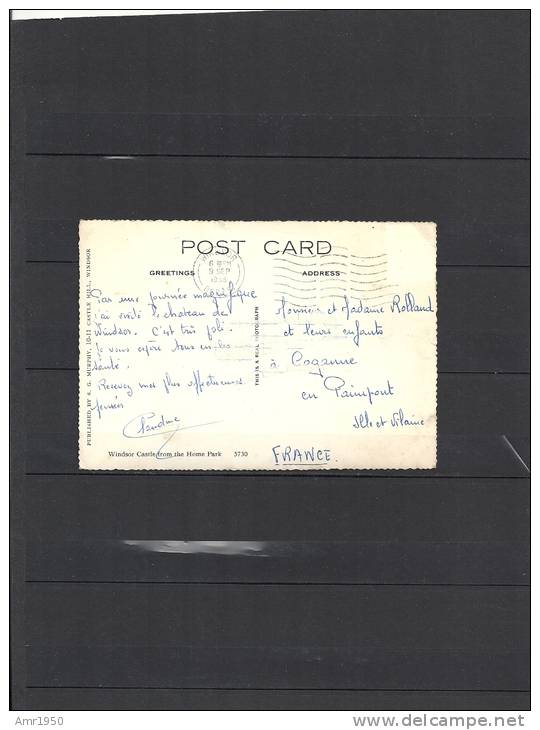 POST CARD
GREETINGS
ADDRESS
WINDSOR
9 SEP
Par une journée magnifique
j'ai visité le château de
Windsor. C'est très joli.
Je vous espère tous en bonne
santé.
Recevez mes plus affectueuses
pensées
Monsieur et Madame Rolland
et leurs enfants
à Coganne
en Paimpont
Ille et Vilaine
FRANCE.
THIS IS A REAL PHOTOGRAPH
PUBLISHED BY S. G. MURPHY, 10-11 CASTLE HILL, WINDSOR
Windsor Castle from the Home Park 5730
Amr1950
www.delcampe.net